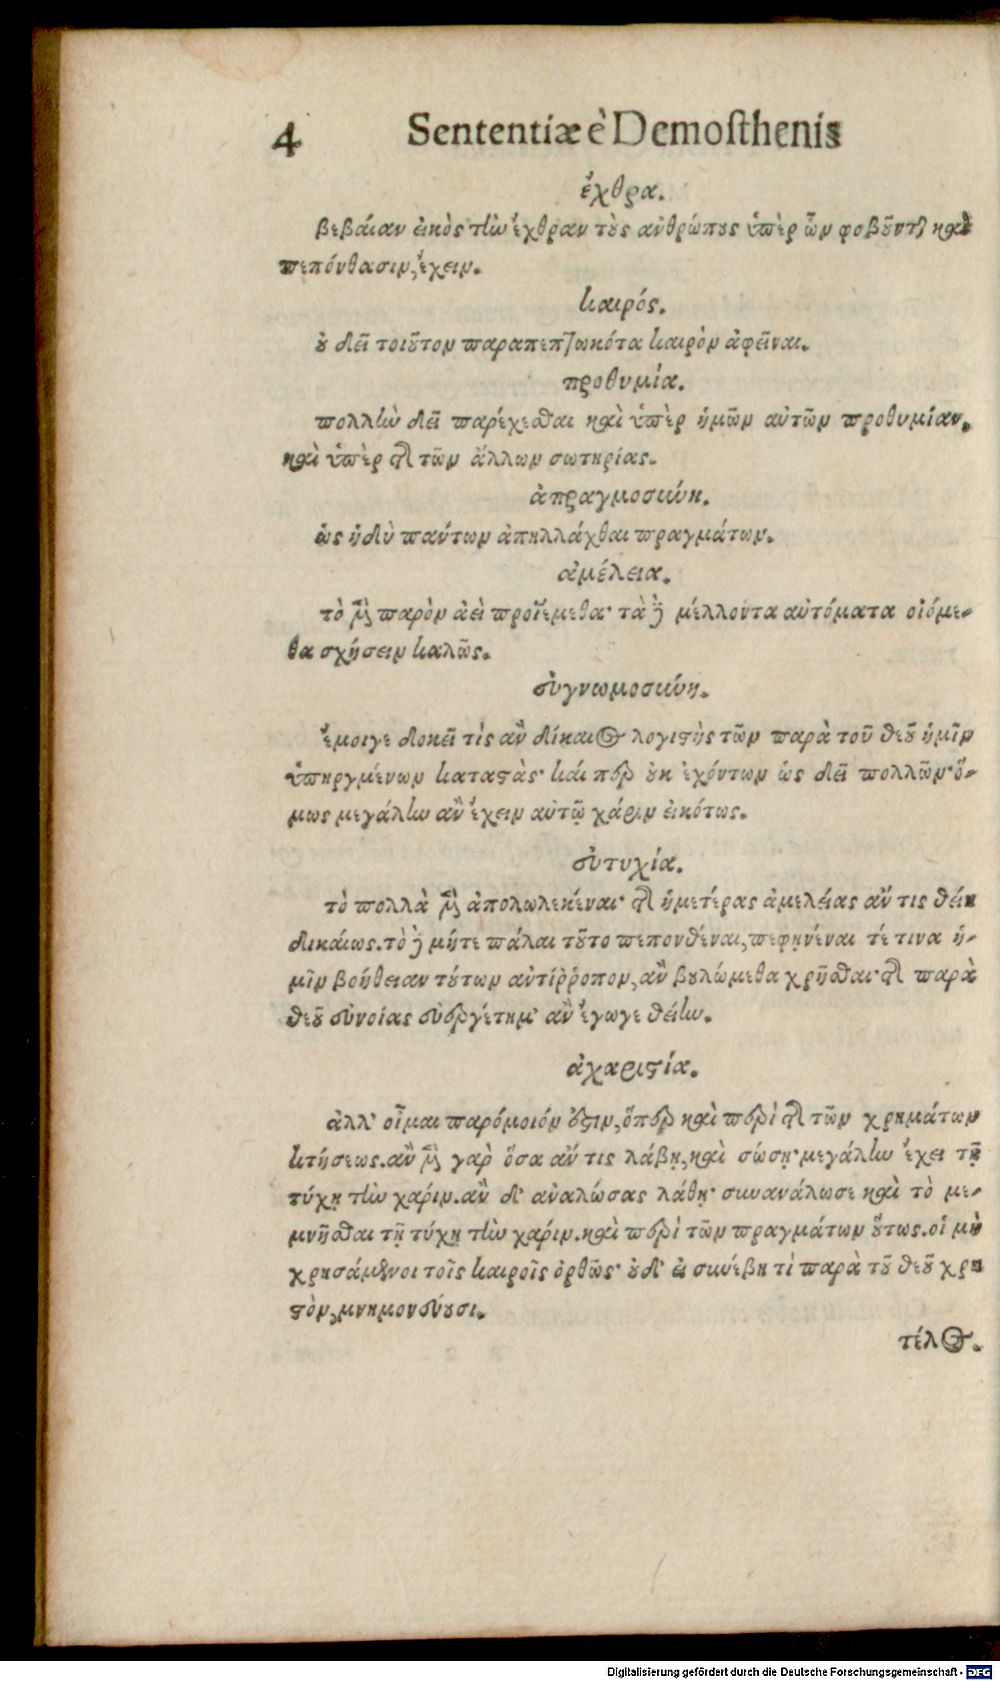 4 Sententiæ è Demosthenis
ἔχθρα.
βεβαίαν εἰκὸς τὴν ἔχθραν τοὺς ἀνθρώπους ὑπὲρ ὧν φοβοῦνται καὶ
πεπόνθασιν, ἔχειν.
καιρός.
οὐ δεῖ τοιοῦτον παραπεπτωκότα καιρὸν ἀφεῖναι.
προθυμία.
πολλὴν δεῖ παρέχεσθαι καὶ ὑπὲρ ἡμῶν αὐτῶν προθυμίαν,
καὶ ὑπὲρ τῆς τῶν ἄλλων σωτηρίας.
ἀπραγμοσύνη.
ὡς ἡδὺ πάντων ἀπηλλάχθαι πραγμάτων.
ἀμέλεια.
τὸ μὲν παρὸν ἀεὶ προϊέμεθα· τὰ δὲ μέλλοντα αὐτόματα οἰόμε-
θα σχήσειν καλῶς.
εὐγνωμοσύνη.
ἔμοιγε δοκεῖ τὶς ἂν δίκαιος λογιστὴς τῶν παρὰ τοῦ θεοῦ ἡμῖν
ὑπηργμένων καταστὰς· καί περ οὐκ ἐχόντων ὡς δεῖ πολλῶν· ὅ-
μως μεγάλην ἂν ἔχειν αὐτῷ χάριν εἰκότως.
εὐτυχία.
τὸ πολλὰ μὲν ἀπολωλεκέναι· τῆς ἡμετέρας ἀμελείας ἄν τις θείη
δικαίως. τὸ δὲ μήτε πάλαι τοῦτο πεπονθέναι, πεφηνέναι τέ τινα ἡ-
μῖν βοήθειαν τούτων ἀντίῤῥοπον, ἂν βουλώμεθα χρῆσθαι· τῆς παρὰ
θεοῦ εὐνοίας εὐεργέτημ' ἂν ἔγωγε θείην.
ἀχαριστία.
ἀλλ' οἶμαι παρόμοιόν ἐστιν, ὅπερ καὶ περὶ τῆς τῶν χρημάτων
κτήσεως. ἂν μὲν γὰρ ὅσα ἄν τις λάβῃ, καὶ σώσῃ· μεγάλην ἔχει τῇ
τύχῃ τὴν χάριν. ἂν δ' ἀναλώσας λάθῃ· συνανάλωσε καὶ τὸ με-
μνῆσθαι τῇ τύχῃ τὴν χάριν. καὶ περὶ τῶν πραγμάτων οὕτως. οἱ μὴ
χρησάμενοι τοῖς καιροῖς ὀρθῶς· οὐδ' εἰ συνέβη τὶ παρὰ τοῦ θεοῦ χρη
στὸν, μνημονεύουσι.
τέλος.
Digitalisierung gefördert durch die Deutsche Forschungsgemeinschaft - DFG